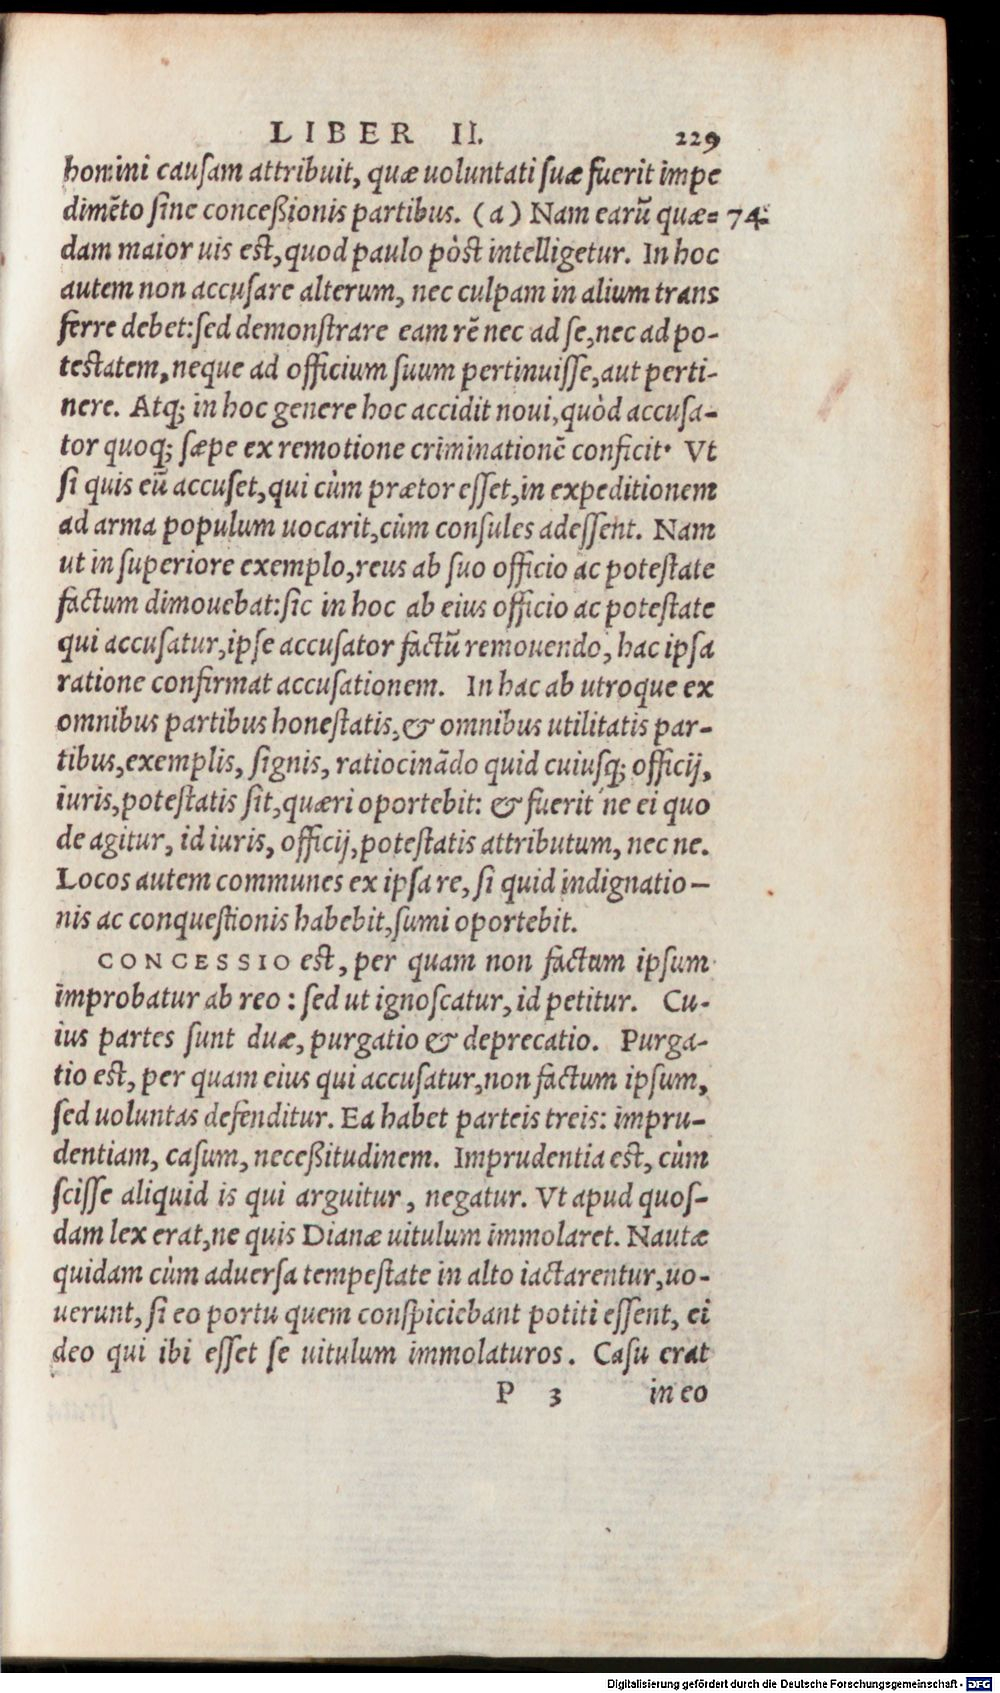 LIBER II. 229
homini causam attribuit, quæ uoluntati suæ fuerit impe
dimẽto sine conceßionis partibus. (a) Nam earũ quæ= 74.
dam maior uis est, quod paulo pòst intelligetur. In hoc
autem non accusare alterum, nec culpam in alium trans
ferre debet: sed demonstrare eam rẽ nec ad se, nec ad po-
testatem, neque ad officium suum pertinuisse, aut perti-
nere. Atq; in hoc genere hoc accidit noui, quòd accusa-
tor quoq; sæpe ex remotione criminationẽ conficit. Vt
si quis eũ accuset, qui cùm prætor esset, in expeditionem
ad arma populum uocarit, cùm consules adessent. Nam
ut in superiore exemplo, reus ab suo officio ac potestate
factum dimouebat: sic in hoc ab eius officio ac potestate
qui accusatur, ipse accusator factũ remouendo, hac ipsa
ratione confirmat accusationem. In hac ab utroque ex
omnibus partibus honestatis, & omnibus utilitatis par-
tibus, exemplis, signis, ratiocinãdo quid cuiusq; officij,
iuris, potestatis sit, quæri oportebit: & fuerit ne ei quo
de agitur, id iuris, officij, potestatis attributum, nec ne.
Locos autem communes ex ipsa re, si quid indignatio-
nis ac conquestionis habebit, sumi oportebit.
CONCESSIO est, per quam non factum ipsum
improbatur ab reo: sed ut ignoscatur, id petitur. Cu-
ius partes sunt duæ, purgatio & deprecatio. Purga-
tio est, per quam eius qui accusatur, non factum ipsum,
sed uoluntas defenditur. Ea habet parteis treis: impru-
dentiam, casum, neceßitudinem. Imprudentia est, cùm
scisse aliquid is qui arguitur, negatur. Vt apud quos-
dam lex erat, ne quis Dianæ uitulum immolaret. Nautæ
quidam cùm aduersa tempestate in alto iactarentur, uo-
uerunt, si eo portu quem conspiciebant potiti essent, ei
deo qui ibi esset se uitulum immolaturos. Casu erat
P 3 in eo
Digitalisierung gefördert durch die Deutsche Forschungsgemeinschaft - DFG